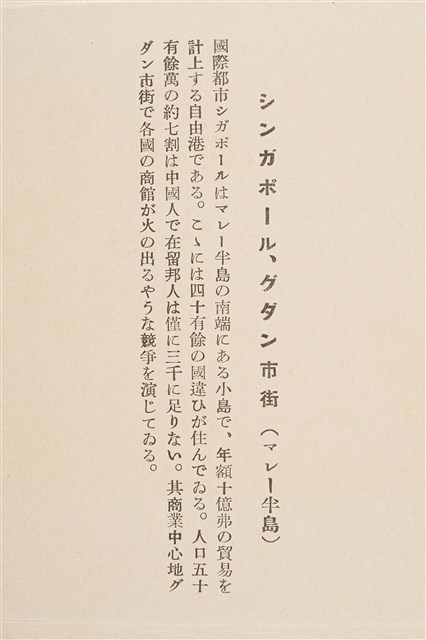 シンガポール、グダン市街（マレー半島）
國際都市シガポールはマレー半島の南端にある小島で、年額十億弗の貿易を
計上する自由港である。こゝには四十有餘の國違ひが住んでゐる。人口五十
有餘萬の約七割は中國人で在留邦人は僅に三千に足りない。其商業中心地グ
ダン市街で各國の商館が火の出るやうな競爭を演じてゐる。